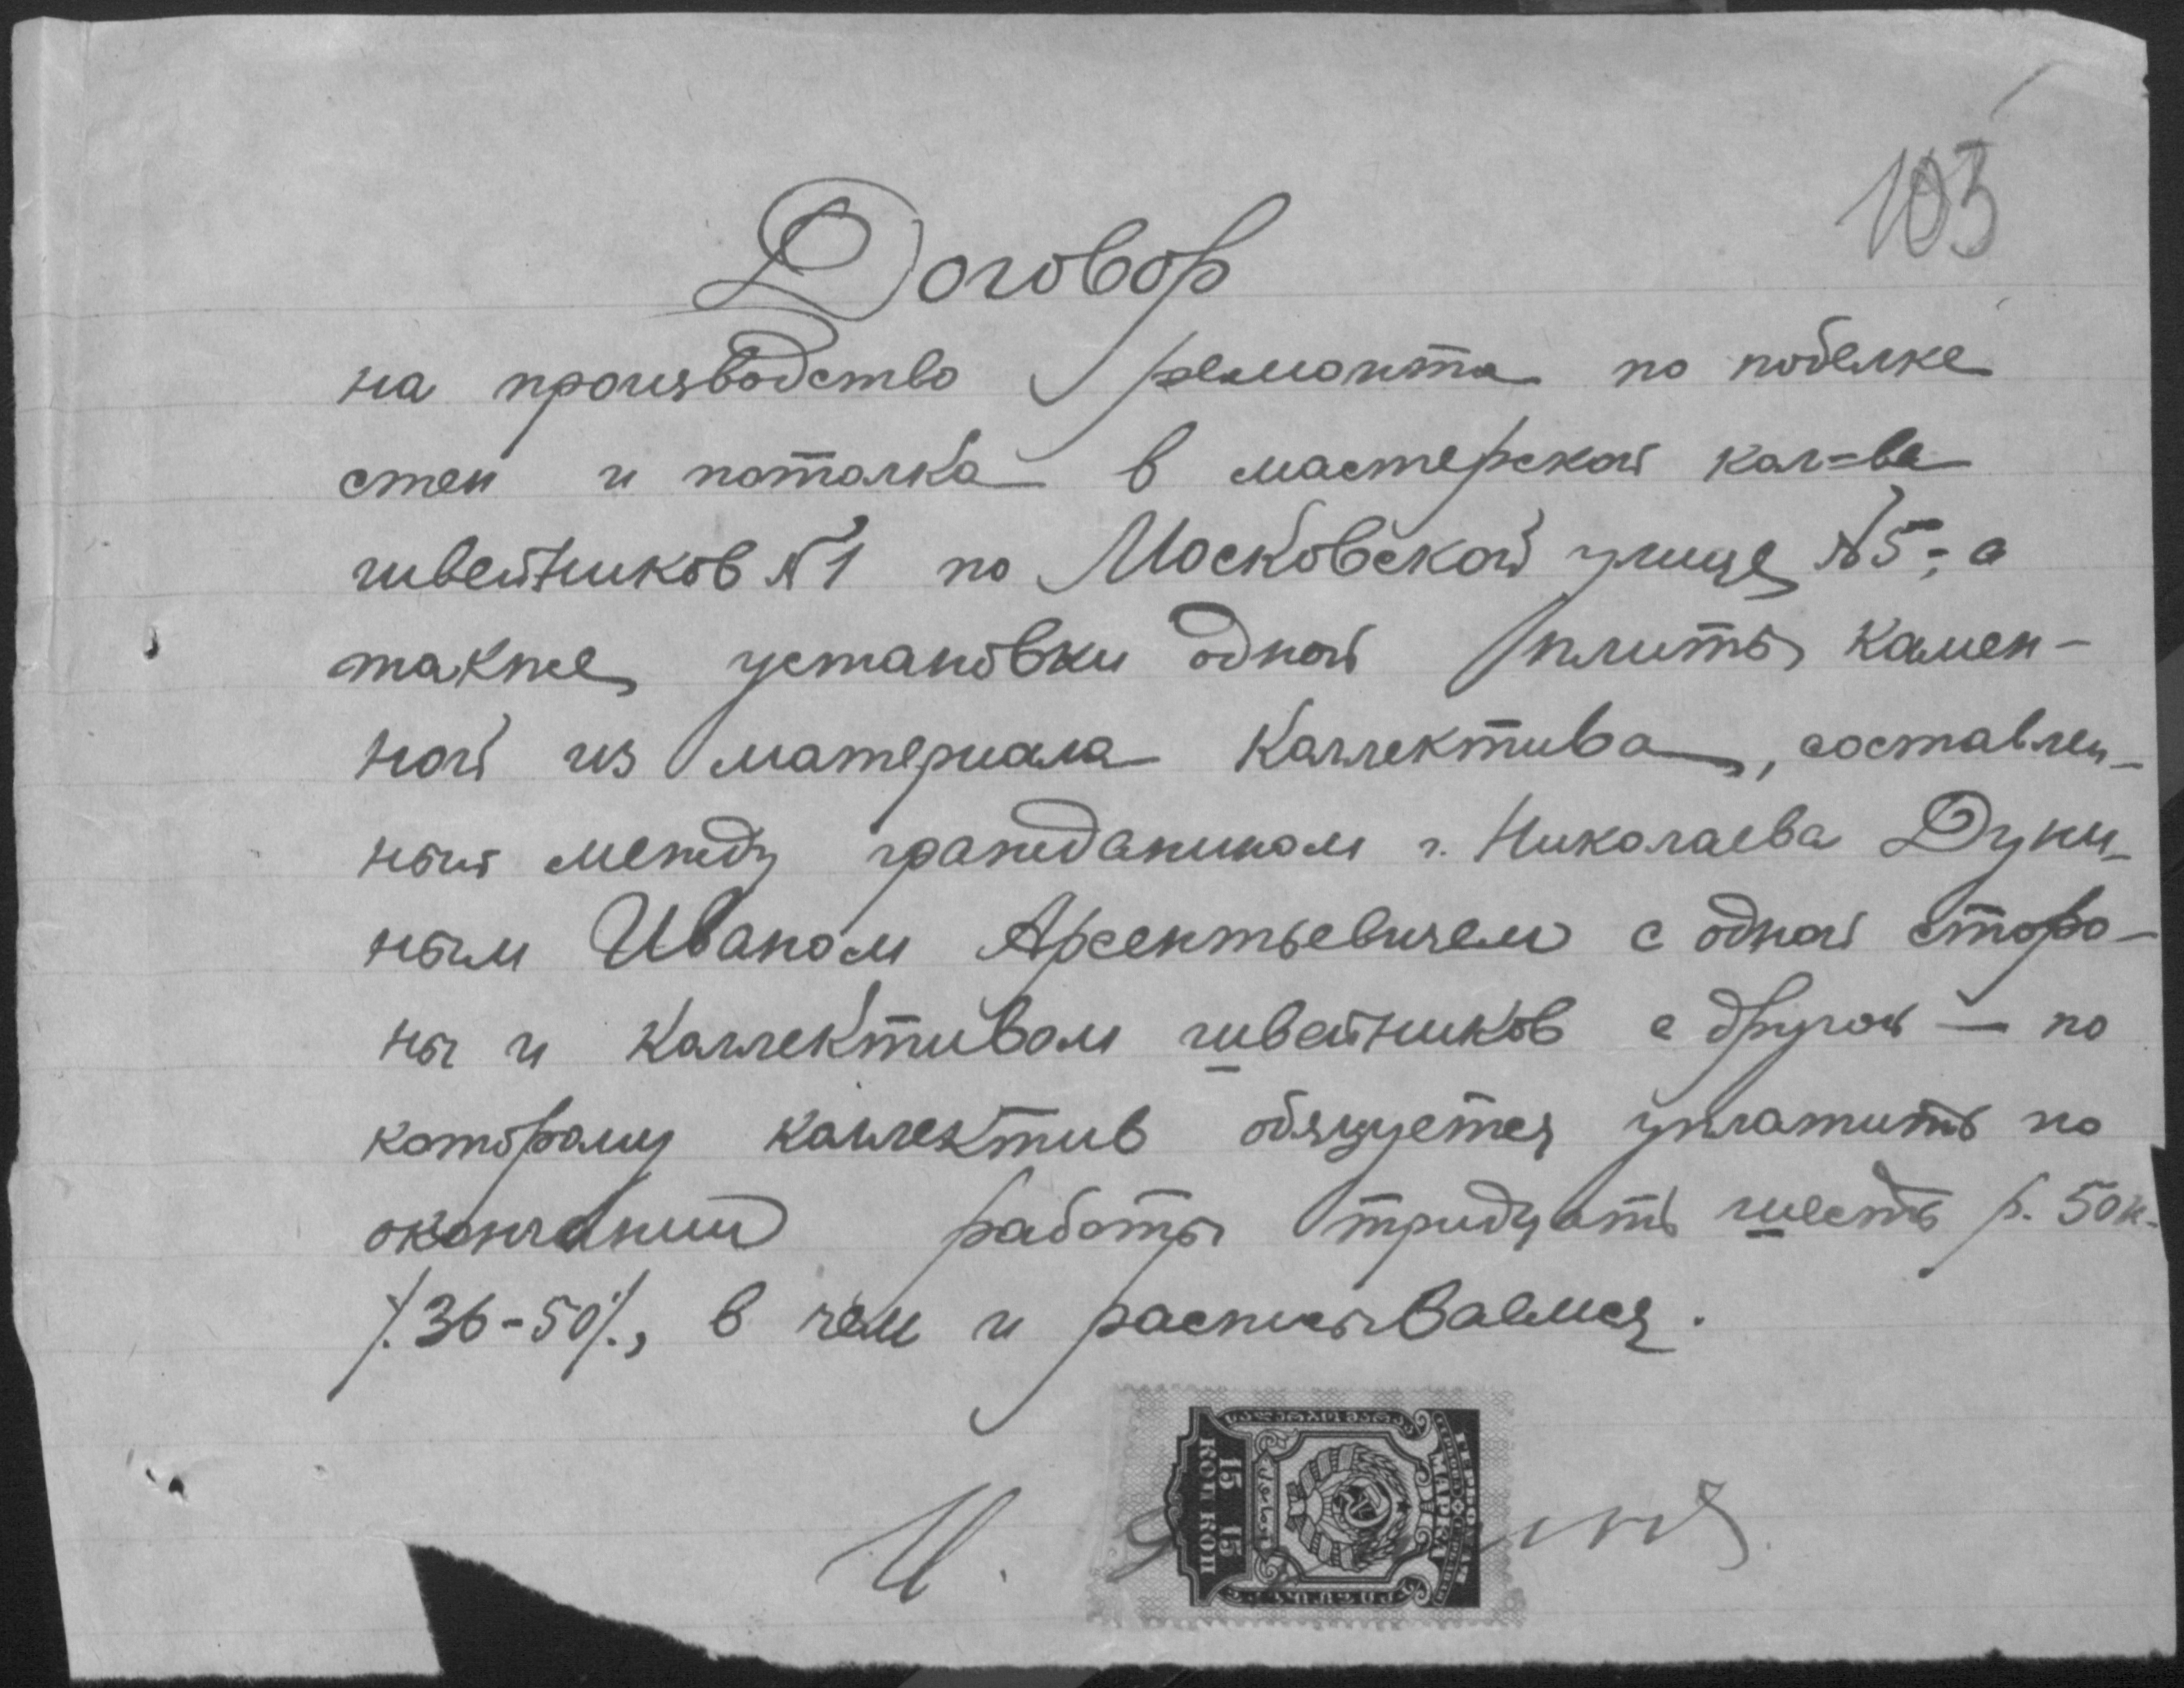 103
Договор
на производство ремонта по побелке
стен и потолка в мастерской кол=ва
швейников №1 по Московской улице №5; а
также установки одной плиты камен-
ной из материала Коллектива, составлен-
ный между гражданином г. Николаева Дуни-
ным Иваном Арсентьевичем с одной сторо-
ны и Коллективом швейников с другой — по
которому коллектив обязуется уплатить по
окончании работы тридцать шесть р. 50 к.
/.36-50/., в чем и расписываемся.
И.
ГЕРБОВАЯ
МАРКА
15 15
КОП КОП